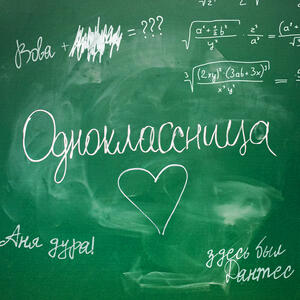 Вова + = ???
√((a⁴+½b⁶)/y²) · z²/a² = (
∛((2xy)²·(3ab+3x)³/(x⁴y²))
Одноклассница
Аня дура!
здесь был
Дантес